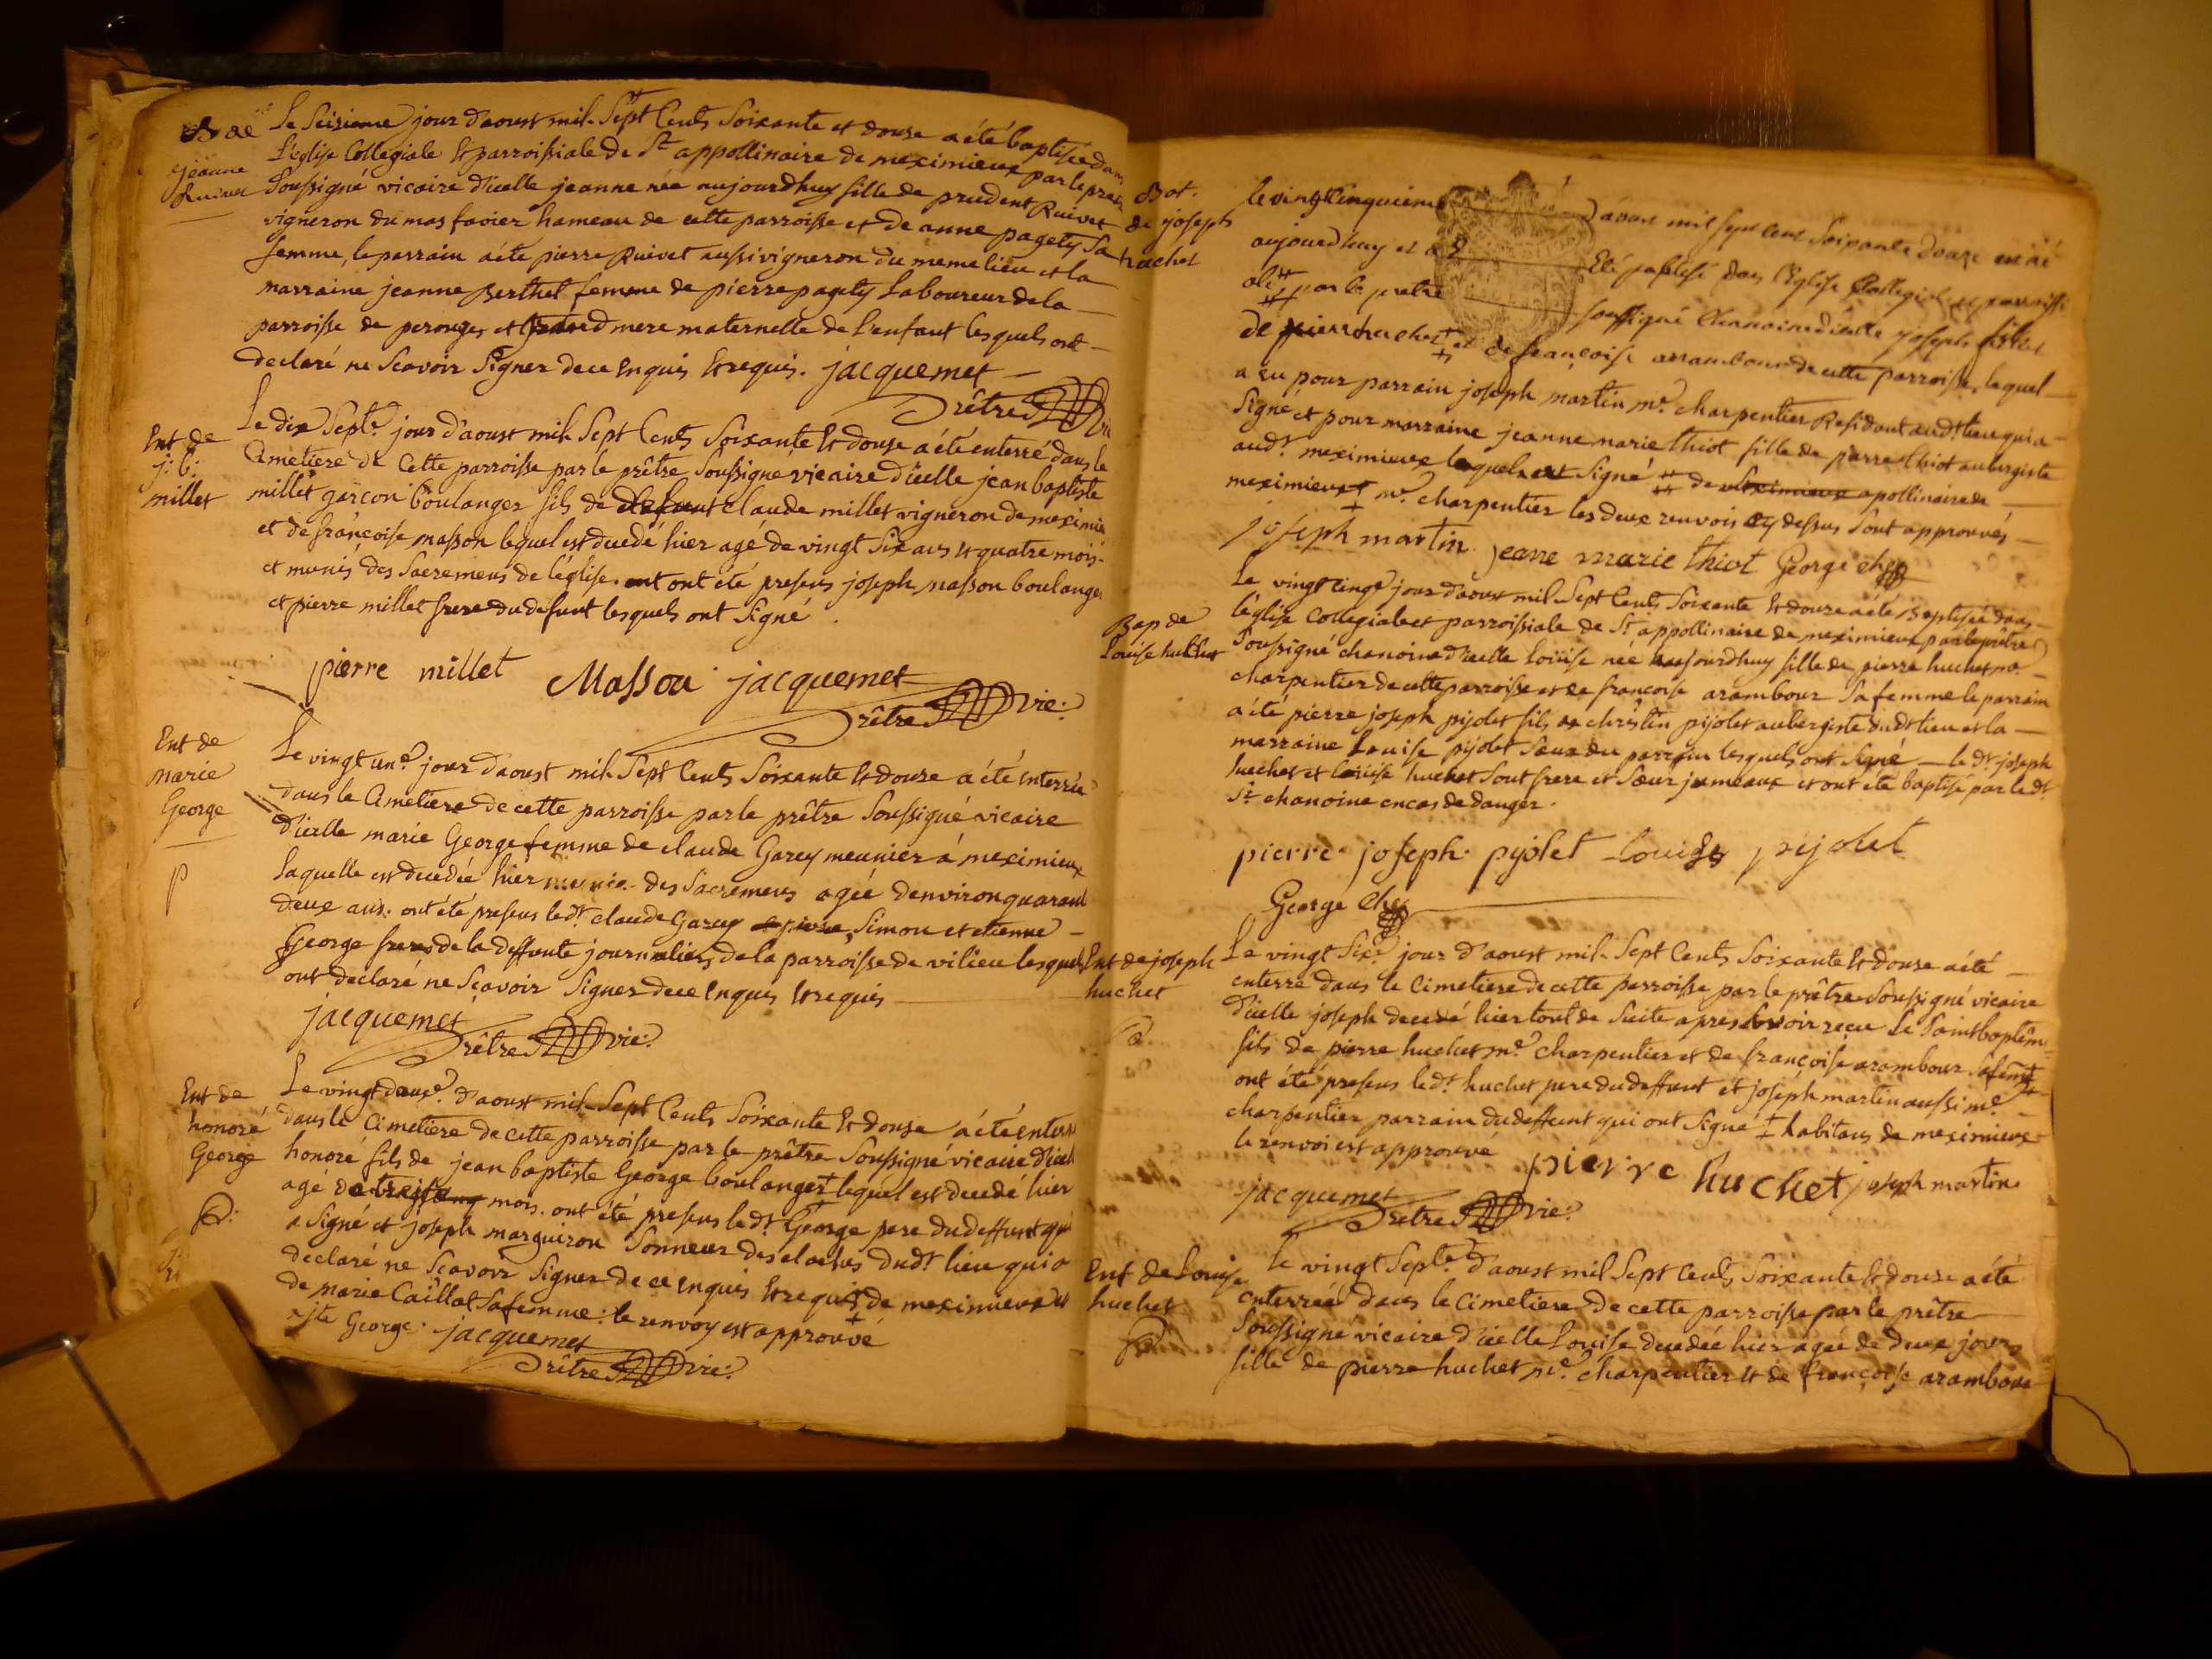 B de
jeanne
Ruivet
Le Seizieme jour d'aoust mil Sept Cents Soixante et douse a été baptisée dans
L'eglise Collegiale et parroissiale de St appollinaire de meximieux par le pretre
Soussigné vicaire d'icelle jeanne née aujourdhuy fille de prudent Ruivet
vigneron du mas favier hameau de cette parroisse et de anne pagety sa
femme, le parrain a été pierre Ruivet aussi vigneron du meme lieu et la
marraine jeanne Berthet femme de pierre pagety Laboureur de la
parroisse de perouges et mere maternelle de l'enfant lesquels ont
declaré ne Scavoir Signer de ce Enquis et requis. jacquemet
Prêtre vic
Ent de
j: b:
millet
Le dix Septe. jour d'aoust mil Sept Cents Soixante et douse a été enterré dans le
Cimetiere de Cette parroisse par le prêtre Soussigné vicaire d'icelle jean baptiste
millet garçon boulanger fils de defunt claude millet vigneron de meximieu
et de françoise masson lequel est decedé hier agé de vingt Six ans et quatre mois
et munis des Sacremens de l'église. ont été presens joseph masson boulanger
et pierre millet frere du defunt lesquels ont Signé
pierre millet Masson jacquemet
Prêtre vic:
Ent de
marie
George
P
Le vingt une. jour d'aoust mil Sept Cents Soixante et douse a été Enterrée
dans le Cimetiere de cette parroisse par le prêtre Soussigné vicaire
d'icelle marie George femme de claude Garey meunier à meximieux
laquelle est decedée hier munie des Sacremens agée denviron quarant
deux ans. ont été presens ledt. claude Garey Simon et etienne
George freres de la deffunte journaliers de la parroisse de vilieu lesquels
ont declaré ne Sçavoir Signer de ce Enquis et requis
jacquemet
Prêtre vic:
Ent de
honoré
George
Le vingt deuxe. d'aoust mil Sept Cents Soixante et douse a été enterré
dans le Cimetiere de cette parroisse par le prêtre Soussigné vicaire d'icel
honoré fils de jean baptiste George boulanger + lequel est decedé hier
agé de mois. ont été presens ledt. George pere du deffunt qui
a Signé et joseph marguiron Sonneur des cloches dudt. lieu qui a
declaré ne Sçavoir Signer de ce Enquis et requis + de meximieux et
de marie Caillat Sa femme. le renvoy est approuvé
George. jacquemet
Prêtre vic:
Bat.
de joseph
huchet
le vingt cinquieme d'aout mil sept cent Soixante douze est né
aujourdhuy et a Eté baptisé dans l'Eglise Collegiale et parroissi
ale par le pretre soussigné Chanoine d'icelle joseph fils
de pierre huchet et de françoise arambour de cette parroisse, lequel
a eu pour parrain joseph martin me. charpentier Residant audt. lieu qui a
Signé et pour marraine jeanne marie thiot fille de pierre thiot aubergiste
audt. meximieux lesquels ont Signé de apollinaire de
meximieux + me. charpentier les deux renvois cy dessus sont approuvés
joseph martin jeane marie thiot George che
Bap de
Louise huchet
Le vingt cinqe. jour d'aoust mil Sept Cents Soixante et douze a été Baptisée dans
l'église Collegiale et parroissiale de St appollinaire de meximieux par le prêtre
Soussigné chanoine d'icelle Louise née aujourdhuy fille de pierre huchet me.
charpentier de cette parroisse et de françoise arambour Sa femme le parrain
a été pierre joseph pijolet fils de christin pijolet aubergiste dudt lieu et la
marraine Louise pijolet Sœur du parrain lesquels ont Signé le dt. joseph
huchet et Louise huchet Sont frere et Sœur jumeaux et ont été baptisé par le dt.
Sr. chanoine en cas de danger.
pierre joseph pijolet Louise pijolet
George che
Ent de joseph
huchet
Le vingt Sixe. jour d'aoust mil Sept Cents Soixante et douse a été
enterré dans le Cimetiere de cette parroisse par le prêtre Soussigné vicaire
d'icelle joseph decedé hier tout de Suite apres avoir recu Le Saint baptême
fils de pierre huchet me. charpentier et de françoise arambour Sa feme +
ont été presens ledt. huchet pere du deffunt et joseph martin aussi me.
charpentier parrain du deffunt qui ont Signé + habitans de meximieux
le renvoi est approuvé
pierre huchet joseph martin
jacquemet
Prêtre vic:
Ent de Louise
huchet
Le vingt Septe. d'aoust mil Sept Cents Soixante et douse a été
enterrée dans le Cimetiere de cette parroisse par le prêtre
Soussigné vicaire d'icelle Louise decedée hier agée de deux jours
fille de pierre huchet me. charpentier et de françoise arambour